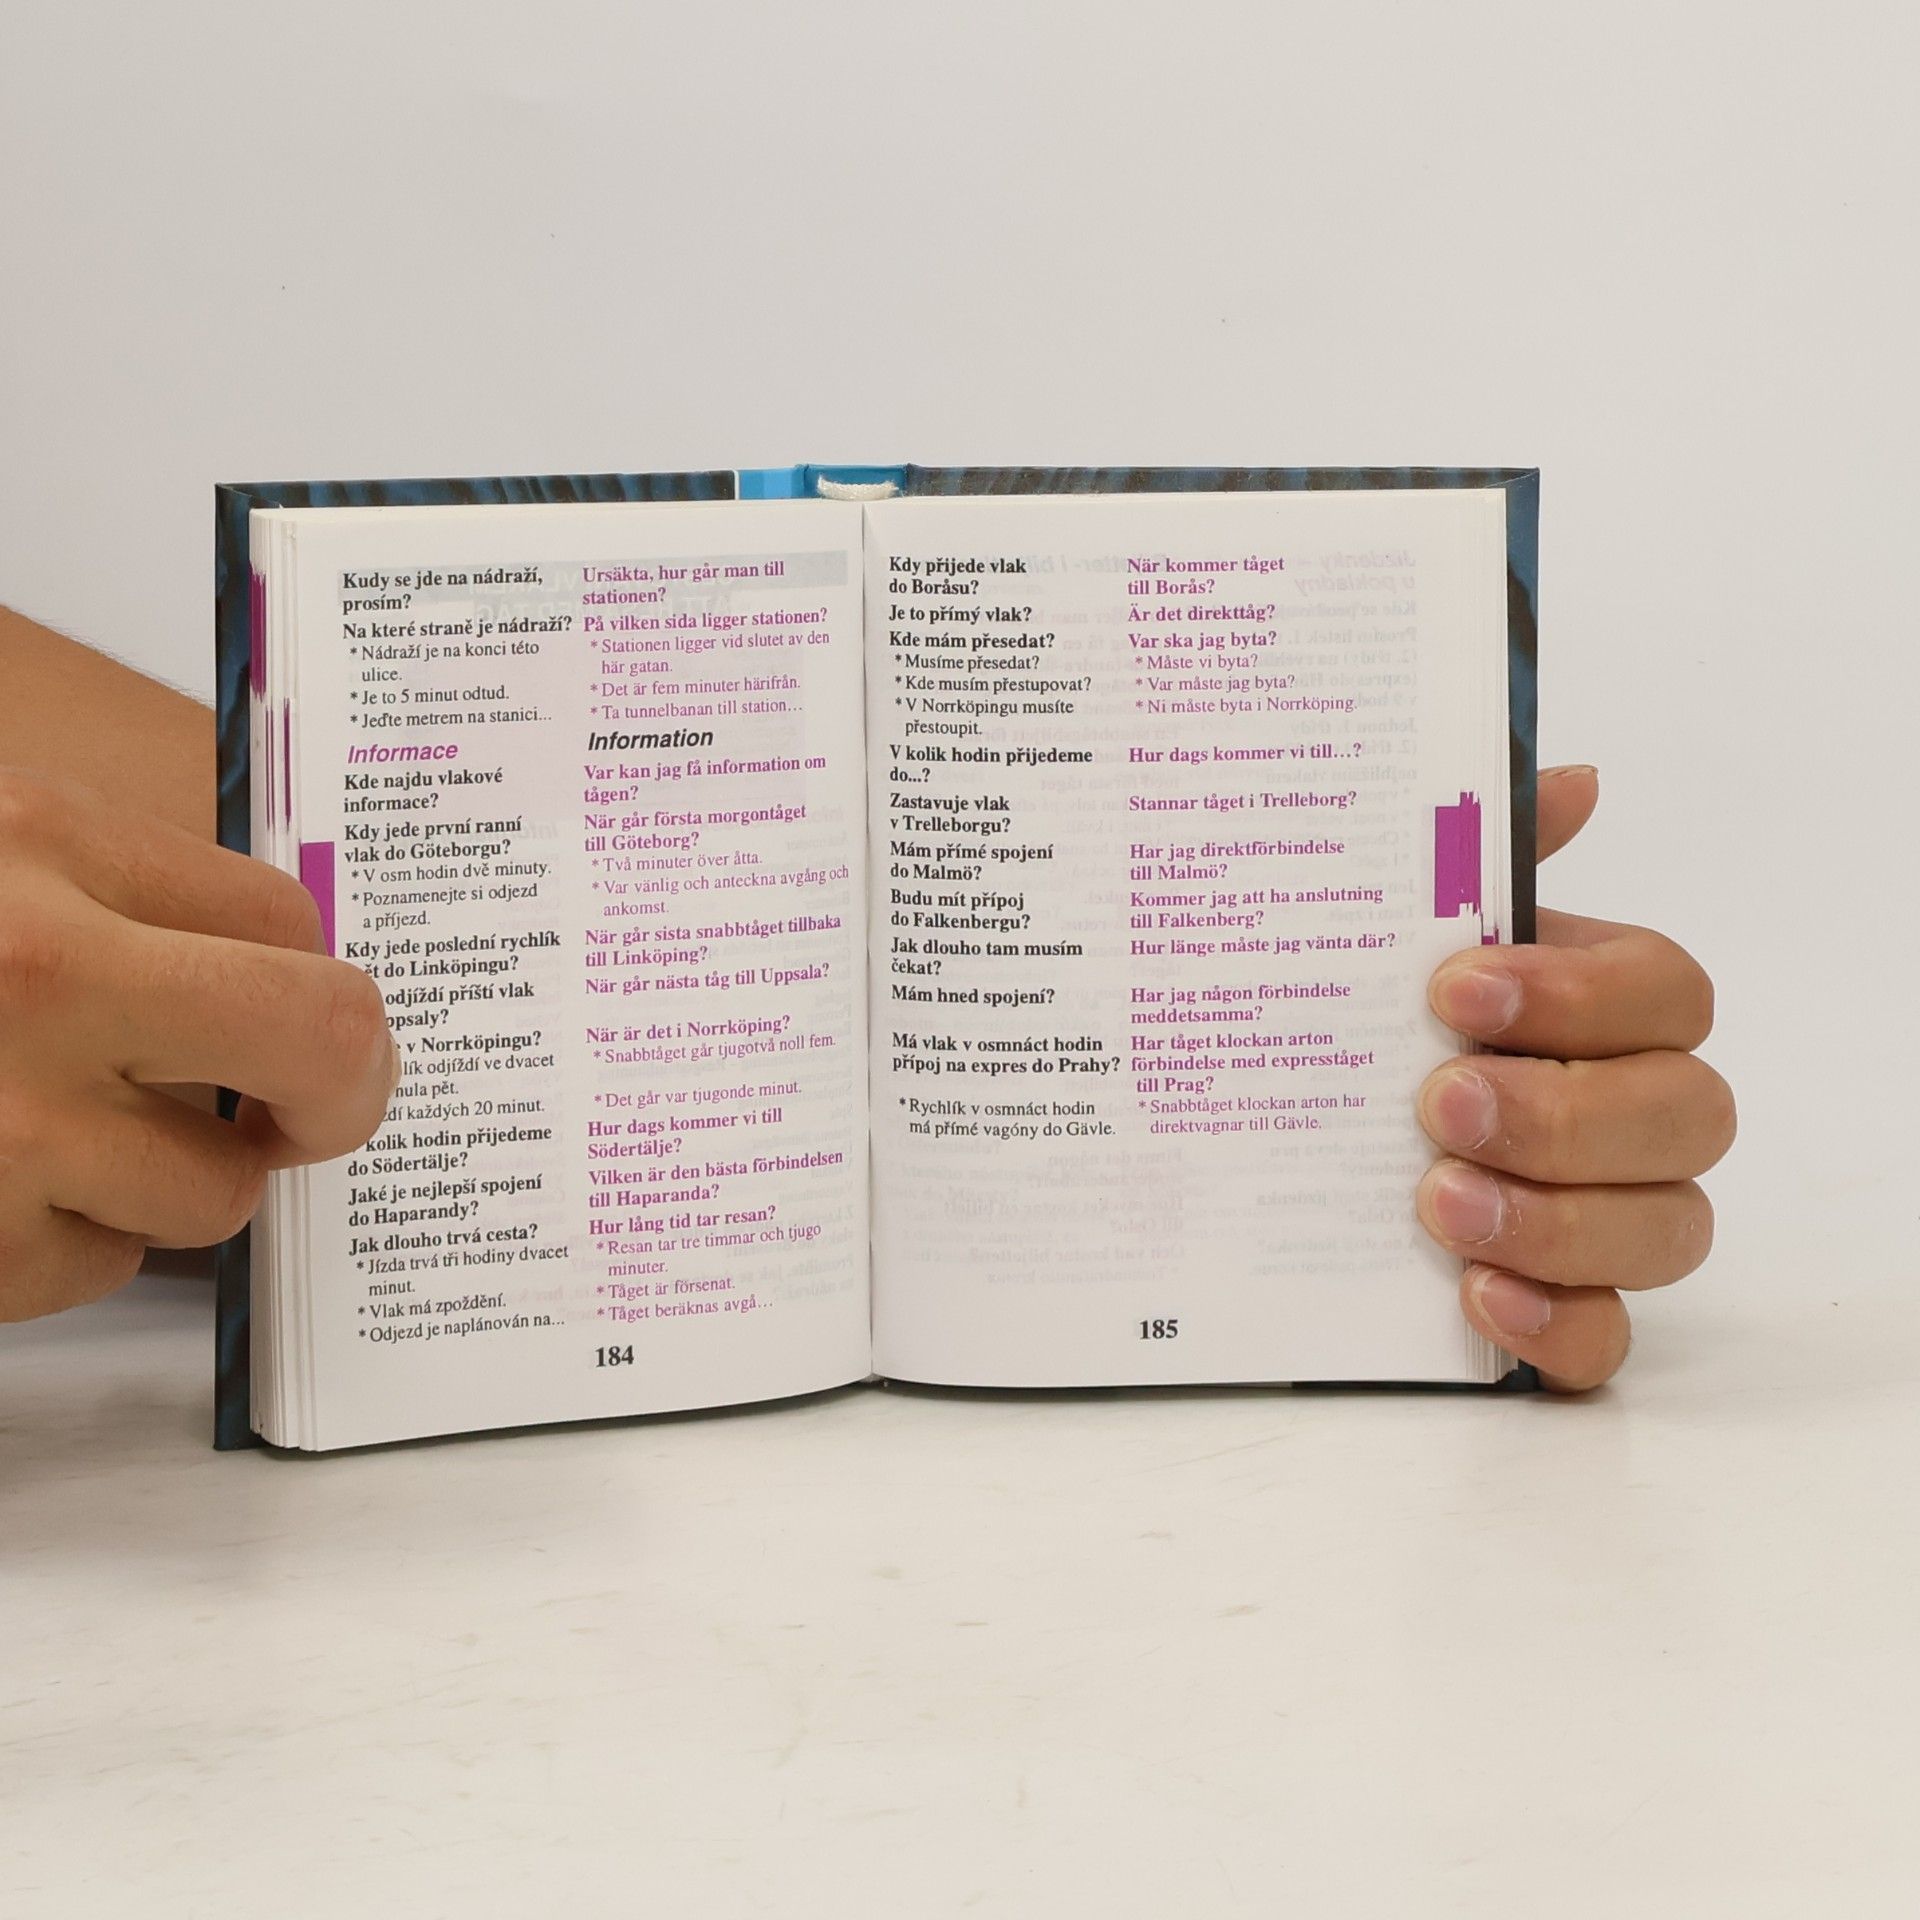 Kudy se jde na nádraží,
prosím?
Na které straně je nádraží?
* Nádraží je na konci této
ulice.
* Je to 5 minut odtud.
* Jeďte metrem na stanici...
Informace
Kde najdu vlakové
informace?
Kdy jede první ranní
vlak do Göteborgu?
* V osm hodin dvě minuty.
* Poznamenejte si odjezd
a příjezd.
Kdy jede poslední rychlík
do Linköpingu?
odjíždí příští vlak
v Norrköpingu?
odjíždí ve dvacet
nula pět.
každých 20 minut.
kolik hodin přijedeme
do Södertälje?
Jaké je nejlepší spojení
do Haparandy?
Jak dlouho trvá cesta?
* Jízda trvá tři hodiny dvacet
minut.
* Vlak má zpoždění.
* Odjezd je naplánován na...
Ursäkta, hur går man till
stationen?
På vilken sida ligger stationen?
* Stationen ligger vid slutet av den
här gatan.
* Det är fem minuter härifrån.
* Ta tunnelbanan till station...
Information
Var kan jag få information om
tågen?
När går första morgontåget
till Göteborg?
* Två minuter över åtta.
* Var vänlig och anteckna avgång och
ankomst.
När går sista snabbtåget tillbaka
till Linköping?
När går nästa tåg till Uppsala?
När är det i Norrköping?
* Snabbtåget går tjugotvå noll fem.
* Det går var tjugonde minut.
Hur dags kommer vi till
Södertälje?
Vilken är den bästa förbindelsen
till Haparanda?
Hur lång tid tar resan?
* Resan tar tre timmar och tjugo
minuter.
* Tåget är försenat.
* Tåget beräknas avgå...
184
Kdy přijede vlak
do Boråsu?
Je to přímý vlak?
Kde mám přesedat?
* Musíme přesedat?
* Kde musím přestupovat?
* V Norrköpingu musíte
přestoupit.
V kolik hodin přijedeme
do...?
Zastavuje vlak
v Trelleborgu?
Mám přímé spojení
do Malmö?
Budu mít přípoj
do Falkenbergu?
Jak dlouho tam musím
čekat?
Mám hned spojení?
Má vlak v osmnáct hodin
přípoj na expres do Prahy?
* Rychlík v osmnáct hodin
má přímé vagóny do Gävle.
När kommer tåget
till Borås?
Är det direkttåg?
Var ska jag byta?
* Måste vi byta?
* Var måste jag byta?
* Ni måste byta i Norrköping.
Hur dags kommer vi till...?
Stannar tåget i Trelleborg?
Har jag direktförbindelse
till Malmö?
Kommer jag att ha anslutning
till Falkenberg?
Hur länge måste jag vänta där?
Har jag någon förbindelse
meddetsamma?
Har tåget klockan arton
förbindelse med expresståget
till Prag?
* Snabbtåget klockan arton har
direktvagnar till Gävle.
185